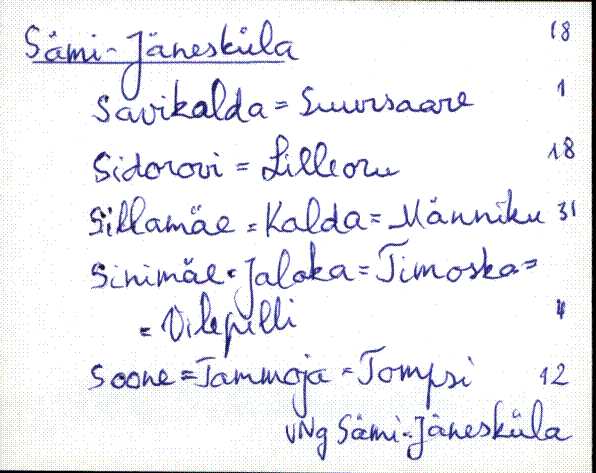 Sämi-Jänesküla 18
Savikalda = Suursaare 1
Sidorovi = Lilleoru 18
Sillamäe = Kalda = Männiku 31
Sinimäe = Jaloka = Timoska =
= Vilepilli 4
Soone = Tammoja = Tompsi 12
VNg Sämi-Jänesküla